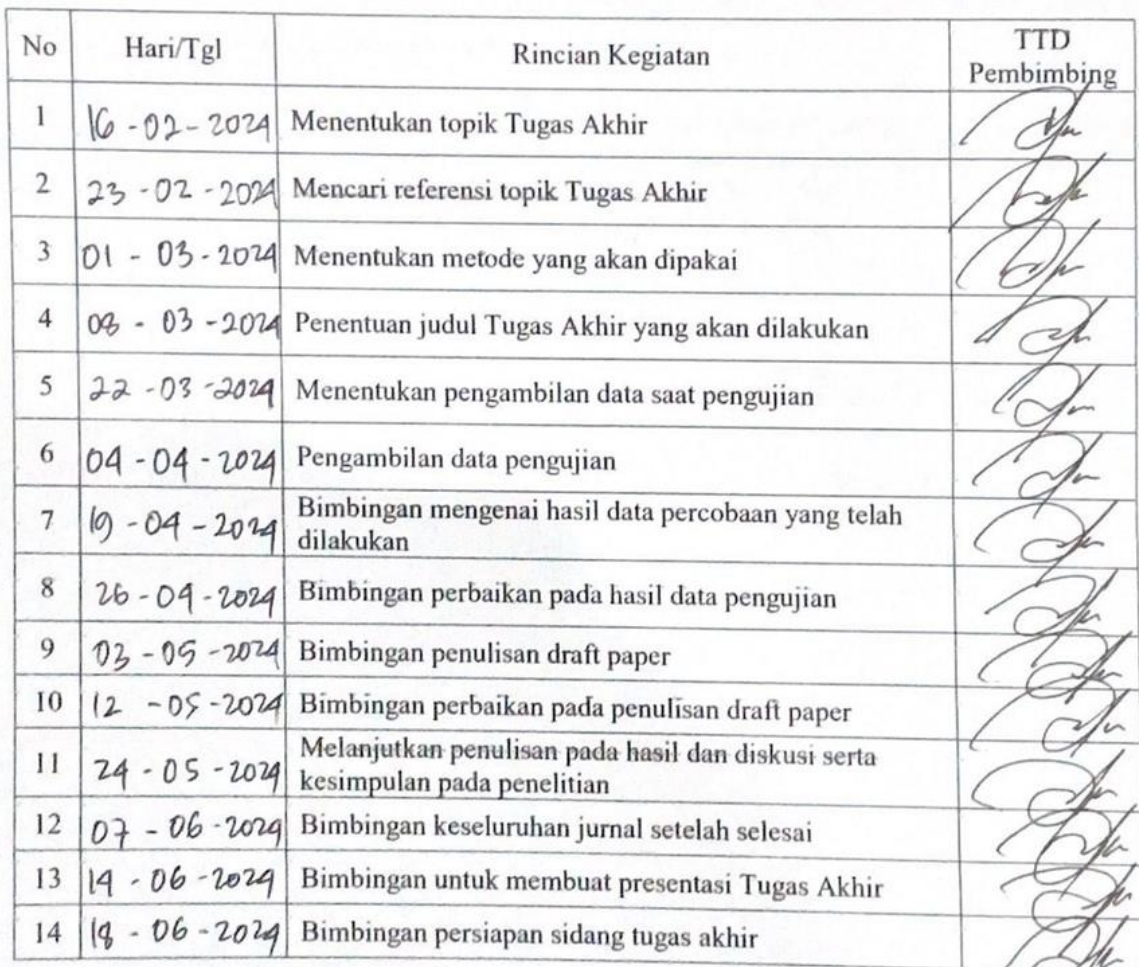 No Hari/Tgl Rincian Kegiatan TTD
Pembimbing
1 16-02-2024 Menentukan topik Tugas Akhir
2 23-02-2024 Mencari referensi topik Tugas Akhir
3 01-03-2024 Menentukan metode yang akan dipakai
4 08-03-2024 Penentuan judul Tugas Akhir yang akan dilakukan
5 22-03-2024 Menentukan pengambilan data saat pengujian
6 04-04-2024 Pengambilan data pengujian
7 19-04-2024 Bimbingan mengenai hasil data percobaan yang telah
dilakukan
8 26-04-2024 Bimbingan perbaikan pada hasil data pengujian
9 03-05-2024 Bimbingan penulisan draft paper
10 12-05-2024 Bimbingan perbaikan pada penulisan draft paper
11 24-05-2024 Melanjutkan penulisan pada hasil dan diskusi serta
kesimpulan pada penelitian
12 07-06-2024 Bimbingan keseluruhan jurnal setelah selesai
13 14-06-2024 Bimbingan untuk membuat presentasi Tugas Akhir
14 18-06-2024 Bimbingan persiapan sidang tugas akhir